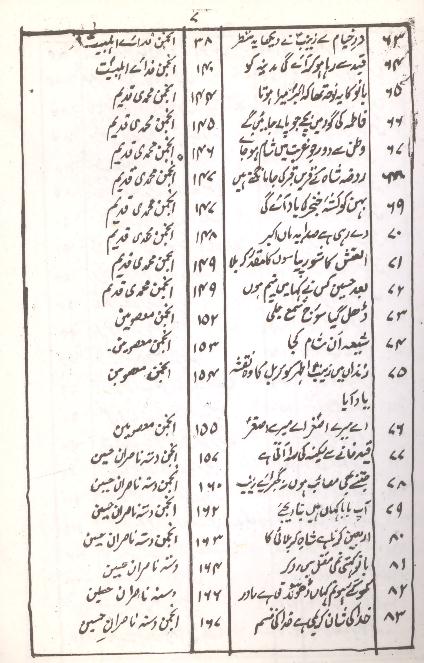 ۷
۶۳ در خیام سے زینب نے دیکھا یہ منظر ۳۸ انجمن فدائے اہلبیت
۶۴ قید سے رہا ہو کر آئے گی مدینہ کو ۱۴۰ انجمن فدائے اہلبیت
۶۵ بانو کا یہ نوحہ تھا کہ اکبر میرا ہوتا ۱۴۴ انجمن محمدی قدیم
۶۶ فاطمہ کی گود میں بچے جو پالے جائیں گے ۱۴۵ انجمن محمدی قدیم
۶۷ وطن سے دور جو غربت میں شام ہو جائے ۱۴۶ انجمن محمدی قدیم
۶۸ روضہ شاہ کے قریں قبر کی جا مانگتے ہیں ۱۴۷ انجمن محمدی قدیم
۶۹ بہن کو کشتہ خنجر کی یاد آئے گی ۱۴۷ انجمن محمدی قدیم
۷۰ دے رہی ہے صدا یہ ماں اکبر ۱۴۸ انجمن محمدی قدیم
۷۱ العطش کا شور پیاسوں کا مقدر کربلا ۱۴۹ انجمن محمدی قدیم
۷۲ بعد حسین کس نے کہا میں یتیم ہوں ۱۴۹ انجمن محمدی قدیم
۷۳ ڈھل گیا سورج شمع جلی ۱۵۲ انجمن معصومین
۷۴ شیعہ ان شام کجا ۱۵۳ انجمن معصومین
۷۵ زنداں میں زینب کو کربل کا وہ نقشہ ۱۵۴ انجمن معصومین
یاد آیا
۷۶ اے میرے اصغر اے میرے اصغر ۱۵۵ انجمن معصومین
۷۷ قید خانے سے سکینہ کی صدا آتی ہے ۱۵۷ انجمن دستہ ناصران حسین
۷۸ جتنے بھی مصائب ہوں نہ گھبرائے زینب ۱۶۰ انجمن دستہ ناصران حسین
۷۹ آپ بابا کہاں ہیں بتا دیجئے ۱۶۲ انجمن دستہ ناصران حسین
۸۰ اربعین کرنا ہے شاہ کربلائی کا ۱۶۳ انجمن دستہ ناصران حسین
۸۱ بانو کہتی تھی مقتل میں رو کر ۱۶۴ دستہ ناصران حسین
۸۲ کھو گئے ہو تم کہاں ڈھونڈتی ہے مادر ۱۶۶ دستہ ناصران حسین
۸۳ خدا کی شان کریمی ہے خدا کی قسم ۱۶۷ انجمن دستہ ناصران حسین